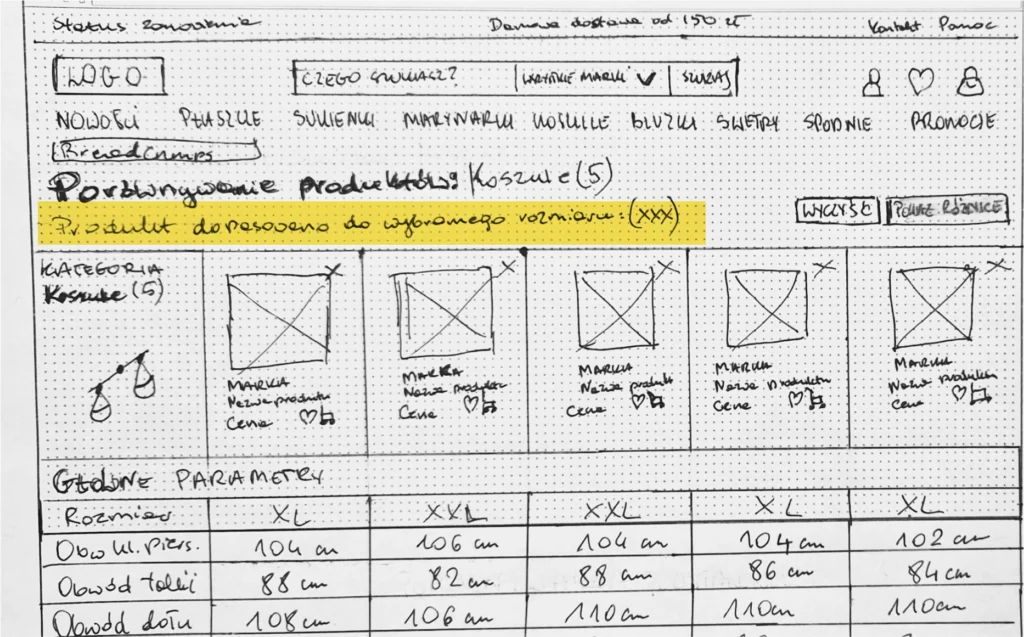 Status zamówienia Darmowa dostawa od 150 zł Kontakt Pomoc
LOGO CZEGO SZUKASZ? WSZYSTKIE MARKI SZUKAJ
NOWOŚCI PŁASZCZE SUKIENKI MARYNARKI KOSZULE BLUZKI SWETRY SPODNIE PROMOCJE
Breadcrumps
Porównywanie produktów: Koszule (5)
Produkt dopasowano do wybranego rozmiaru: (XXX) WYCZYŚĆ POKAŻ RÓŻNICE
KATEGORIA X X X X X
Koszule (5)
MARKA MARKA MARKA MARKA MARKA
Nazwa produktu Nazwa produktu Nazwa produkt Nazwa produktu Nazwa produktu
Cena Cena Cena Cena Cena
GŁÓWNE PARAMETRY
Rozmiar XL XXL XXL XL XL
Obw kl. piers. 104 cm 106 cm 104 cm 104 cm 102 cm
Obwód talii 88 cm 82 cm 88 cm 86 cm 84 cm
Obwód dołu 108 cm 106 cm 110 cm 110 cm 110 cm